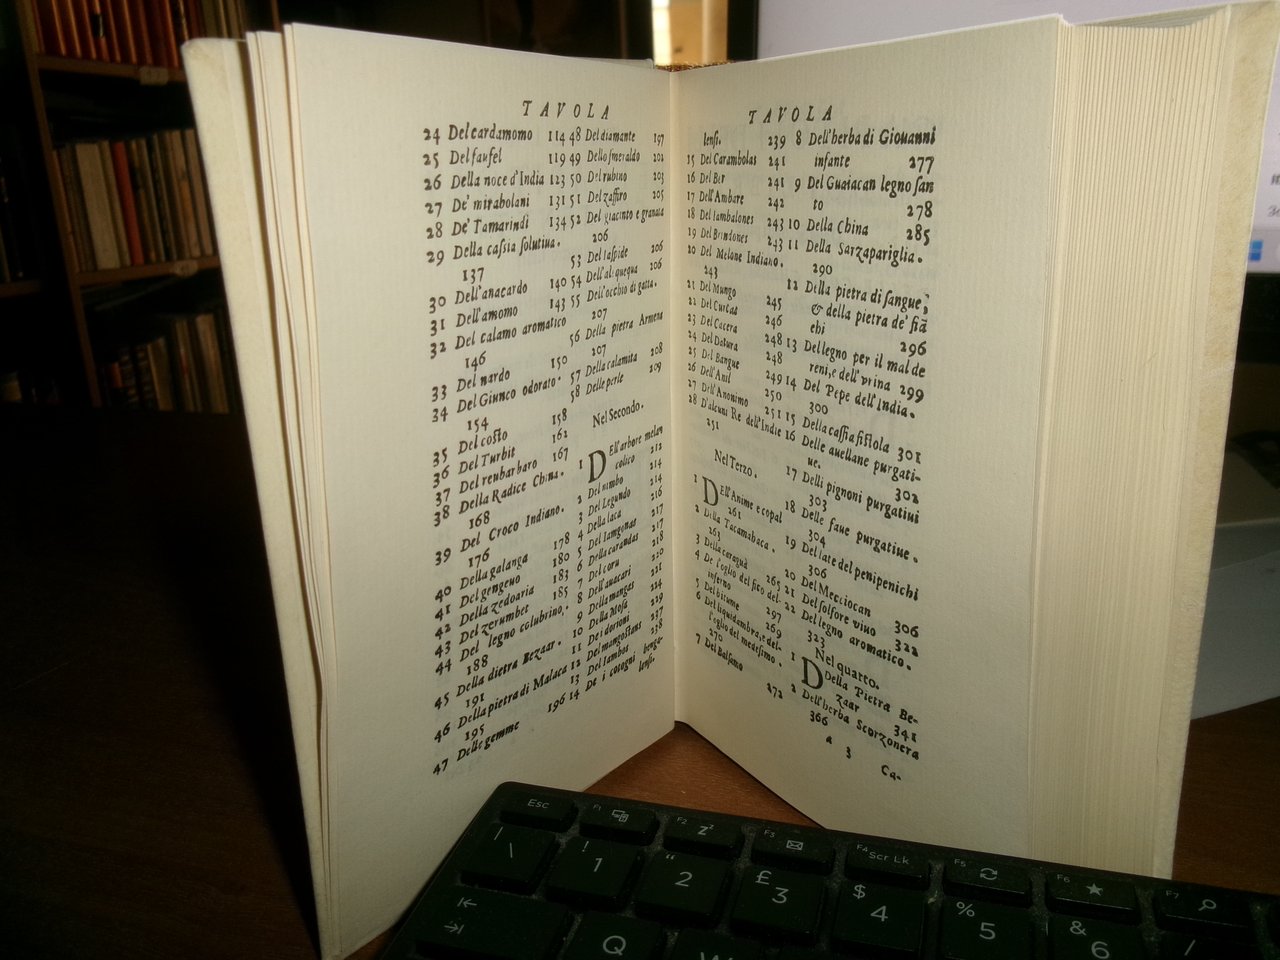 TAVOLA
24 Del cardamomo 114
25 Del faufel 119
26 Della noce d'India 123
27 De' mirabolani 131
28 De' Tamarindi 134
29 Della cassia solutiua.
137
30 Dell'anacardo 140
31 Dell'amomo 143
32 Del calamo aromatico
146
33 Del nardo 150
34 Del Giunco odorato.
154
35 Del costo 158
36 Del Turbit 162
37 Del reubarbaro 167
38 Della Radice China.
168
39 Del Croco Indiano.
176
40 Della galanga 178
41 Del gengeuo 180
42 Della zedoaria 183
43 Del zerumbet 185
44 Del legno colubrino.
188
45 Della pietra Bezaar.
191
46 Della pietra di Malaca
195
47 Delle gemme 196
48 Del diamante 197
49 Dello smeraldo 202
50 Del rubino 203
51 Del zaffiro 205
52 Del giacinto e granata
206
53 Del iaspide 206
54 Dell'alaquequa 206
55 Dell'occhio di gatta.
207
56 Della pietra Armena
207
57 Della calamita 208
58 Delle perle 209
Nel Secondo.
1 DEll'arbore melan
colico 212
2 Del nimbo 214
3 Del Legundo 214
4 Della laca 216
5 Del Iamgomas 217
6 Della carandas 217
7 Del coru 218
8 Dell'auacari 220
9 Della mangas 221
10 Della Mosa 224
11 De i dorioni 229
12 Del mangostans 237
13 Del Iambos 238
14 De i cotogni benga-
lensi.
TAVOLA
lensi. 239
15 Del Carambolas 241
16 Del Ber 241
17 Dell'Ambare 242
18 Del Iambalones 243
19 Del Brindones 243
20 Del Melone Indiano.
243
21 Del Mungo 245
22 Del Curcas 246
23 Del Cacera 248
24 Del Datura 248
25 Del Bangue 249
26 Dell'Anil 250
27 Dell'Anonimo 251
28 D'alcuni Re dell'Indie
251
Nel Terzo.
1 DEll'Anime e copal
261
2 Della Tacamahaca.
263
3 Della caragna 265
4 De l'oglio del fico del-
inferno
5 Del bitume 297
6 Del liquidambra, e del-
l'oglio del medesimo. 269
270
7 Del Balsamo 272
8 Dell'herba di Giouanni
infante 277
9 Del Guaiacan legno san
to 278
10 Della China 285
11 Della Sarzapariglia.
290
12 Della pietra di sangue,
& della pietra de' fiā
chi 296
13 Del legno per il mal de
reni, e dell'vrina 299
14 Del Pepe dell'India.
300
15 Della cassia fistola 301
16 Delle auellane purgati-
ue. 302
17 Delli pignoni purgatiui
303
18 Delle faue purgatiue.
304
19 Del late del penipenichi
306
20 Del Mecciocan 306
21 Del solfore viuo 322
22 Del legno aromatico.
323
Nel quarto.
1 DDella Pietra Be-
zaar 341
2 Dell'herba Scorzonera
366
a 3
Ca-
Esc
F1
F2
F3
F4 Scr Lk
F5
F6
F7
\ |
! 1
" 2
£ 3
$ 4
% 5
& 6
/
Q